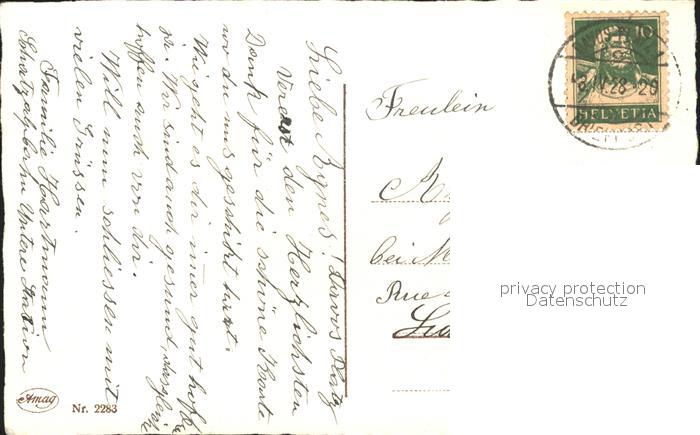 Liebe Agnes! Davos Platz
Vorerst den Herzlichsten
Dank für die schöne Karte
wo du uns geschikt hast.
Wie geht es dir imer gut hoffe
ich. Wir sind auch gesund, desgleich
hoffen auch von dir.
Will nun schliessen mit
vielen Grüssen.
Familie Hartmann
Schatzalpbahn Untere Station
Amag
Nr. 2283
Freulein
A
bei M
Rue
10
HELVETIA
28
privacy protection
Datenschutz